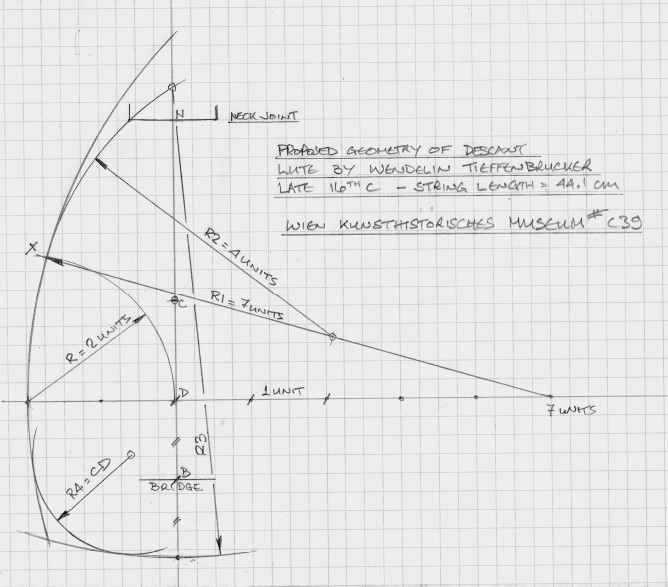 N
NECK JOINT
PROPOSED GEOMETRY OF DESCANT
LUTE BY WENDELIN TIEFFENBRUCKER
LATE 16TH C - STRING LENGTH = 44.1 cm
WIEN KUNSTHISTORISCHES MUSEUM # C39
R2 = 4 UNITS
X
C
R1 = 7 UNITS
R = 2 UNITS
D
1 UNIT
7 UNITS
R3
B
BRIDGE
R4 = CD